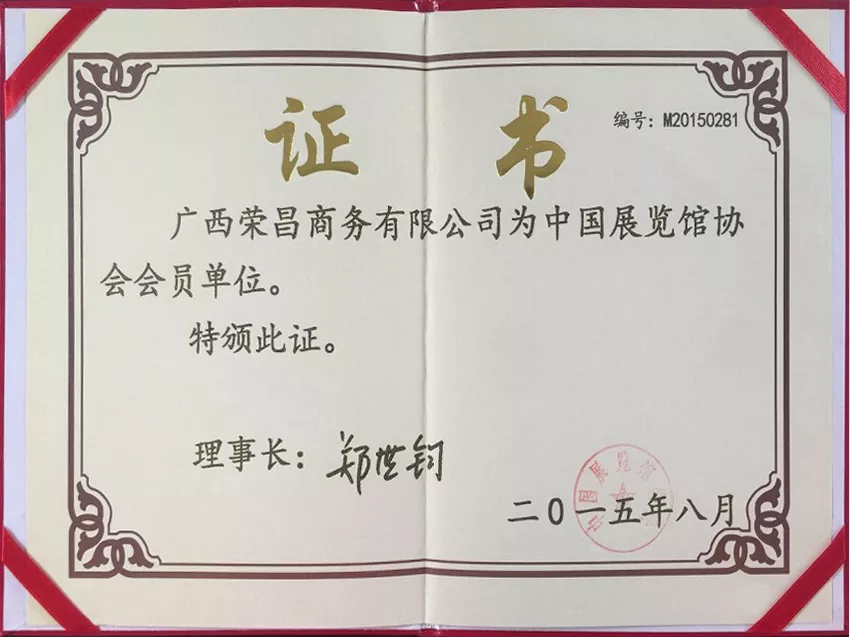 证书
编号：M20150281
广西荣昌商务有限公司为中国展览馆协
会会员单位。
特颁此证。
理事长：郑世钧
二0一五年八月